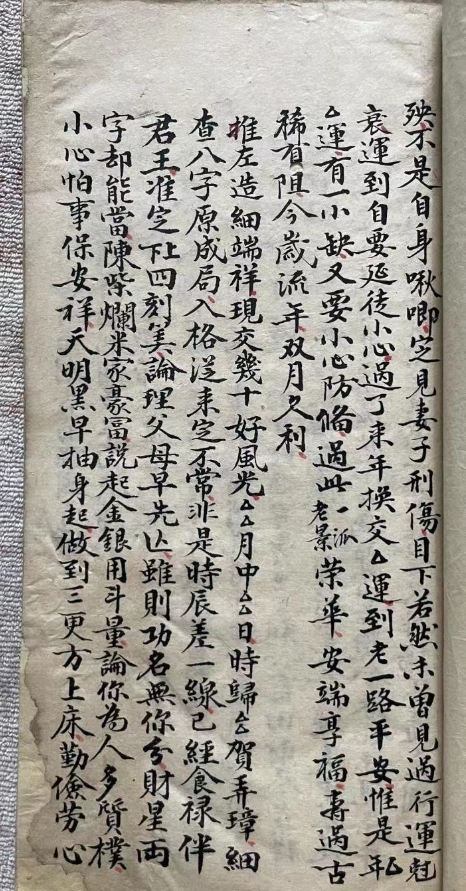 殃不是自身啾唧定見妻子刑傷目下若然未曾見過行運尅
衰運到自要延徒小心過了来年換交△運到老一路平安惟是年
△運有一小缺又要小心防偹過此一派老景荣華安端享福壽過古
稀有阻今歲流年双月久利
推左造細端祥現交幾十好風光△△月中△△日時歸△△賀弄璋細
查八字原成局入格送来定不常非是時辰差一線已經食禄伴
君王准定下上四刻美論理父母早先亾雖則功名無你分財星両
字却能當陳柴爛米家豪富說起金銀用斗量論你為人多質樸
小心怕事保安祥天明黑早抽身起做到三更方上床勤儉劳心